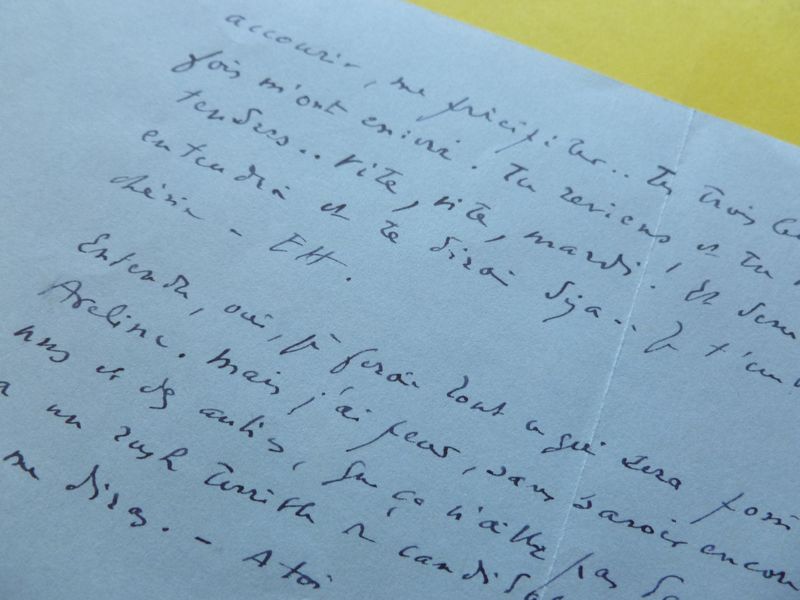 accourir, me précipiter.. Tes trois
fois m'ont enivré. Tu reviens et tu
tendres.. vite, vite, mardi! Et
entendrai et te dirai déjà.. Je t'em
chérie - EH.
Entendu, oui, je ferai tout ce qui sera possi
Aveline. Mais j'ai peur, sans savoir encor
uns et des autres, que ça n'aille pas
a un rush terrible de candida
me diras. - A toi